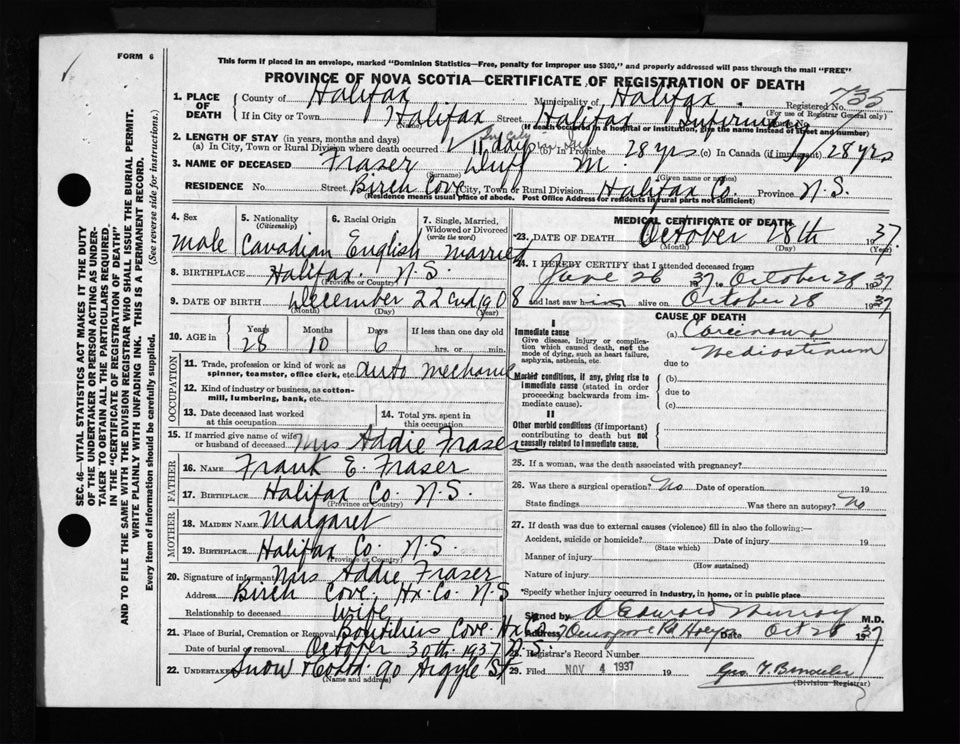 FORM 6
This form if placed in an envelope, marked "Dominion Statistics—Free, penalty for improper use $300," and properly addressed will pass through the mail "FREE"
PROVINCE OF NOVA SCOTIA—CERTIFICATE OF REGISTRATION OF DEATH
SEC. 46—VITAL STATISTICS ACT MAKES IT THE DUTY
OF THE UNDERTAKER OR PERSON ACTING AS UNDER-
TAKER TO OBTAIN ALL THE PARTICULARS REQUIRED
IN THE "CERTIFICATE OF REGISTRATION OF DEATH"
AND TO FILE THE SAME WITH THE DIVISION REGISTRAR WHO SHALL ISSUE THE BURIAL PERMIT.
WRITE PLAINLY WITH UNFADING INK. THIS IS A PERMANENT RECORD.
Every item of information should be carefully supplied. (See reverse side for instructions.)
1. PLACE OF DEATH County of Halifax Municipality of Halifax Registered No. 735
(For use of Registrar General only)
If in City or Town Halifax Street Halifax Infirmary
(Name) (If death occurred in a hospital or institution, give the name instead of street and number)
2. LENGTH OF STAY (in years, months and days)
(a) In City, Town or Rural Division where death occurred 11 days (b) In Province 28 yrs (c) In Canada (if immigrant) 28 yrs
3. NAME OF DECEASED Fraser Duff M
(Surname) (Given name or names)
RESIDENCE No. Street Birch Cove City, Town or Rural Division Halifax Co. Province N.S.
(Residence means usual place of abode. Post Office Address for residents in rural parts not sufficient)
4. Sex 5. Nationality (Citizenship) 6. Racial Origin 7. Single, Married, Widowed or Divorced (write the word)
Male Canadian English Married
8. BIRTHPLACE Halifax. N.S.
(Province or Country)
9. DATE OF BIRTH December 22nd 1908
(Month) (Day) (Year)
10. AGE in Years Months Days If less than one day old
28 10 6 hrs. or min.
OCCUPATION
11. Trade, profession or kind of work as spinner, teamster, office clerk, etc. Auto Mechanic
12. Kind of industry or business, as cotton-mill, lumbering, bank, etc.
13. Date deceased last worked at this occupation 14. Total yrs. spent in this occupation
15. If married give name of wife or husband of deceased Mrs Addie Fraser
FATHER
16. NAME Frank E. Fraser
17. BIRTHPLACE Halifax Co. N.S.
(Province or Country)
MOTHER
18. MAIDEN NAME Margaret
19. BIRTHPLACE Halifax Co. N.S.
(Province or Country)
20. Signature of informant Mrs Addie Fraser
Address Birch Cove, Hx. Co. N.S
Relationship to deceased Wife
21. Place of Burial, Cremation or Removal Boutiliers Cove Hx Co
Date of burial or removal October 30th 1937 N.S.
22. UNDERTAKER Snow &amp; Co. 90 Argyle St
(Name and address)
MEDICAL CERTIFICATE OF DEATH
23. DATE OF DEATH October 28th 1937.
(Month) (Day) (Year)
24. I HEREBY CERTIFY that I attended deceased from
June 26 1937 to October 28 1937
and last saw him alive on October 28 1937
CAUSE OF DEATH
I
Immediate cause
Give disease, injury or complication which caused death, not the mode of dying, such as heart failure, asphyxia, asthenia, etc.
(a) Carcinoma
Mediastinum
due to
Morbid conditions, if any, giving rise to immediate cause (stated in order proceeding backwards from immediate cause).
(b)
due to
(c)
II
Other morbid conditions (if important) contributing to death but not causally related to immediate cause.
25. If a woman, was the death associated with pregnancy?
26. Was there a surgical operation? No Date of operation 19
State findings Was there an autopsy? No
27. If death was due to external causes (violence) fill in also the following:—
Accident, suicide or homicide? Date of injury 19
(State which)
Manner of injury
(How sustained)
Nature of injury
Specify whether injury occurred in Industry, in home, or in public place
Signed by Edward Murray M.D.
Address Date Oct 28 1937
28. Registrar's Record Number
29. Filed NOV 4 1937 19
(Division Registrar)